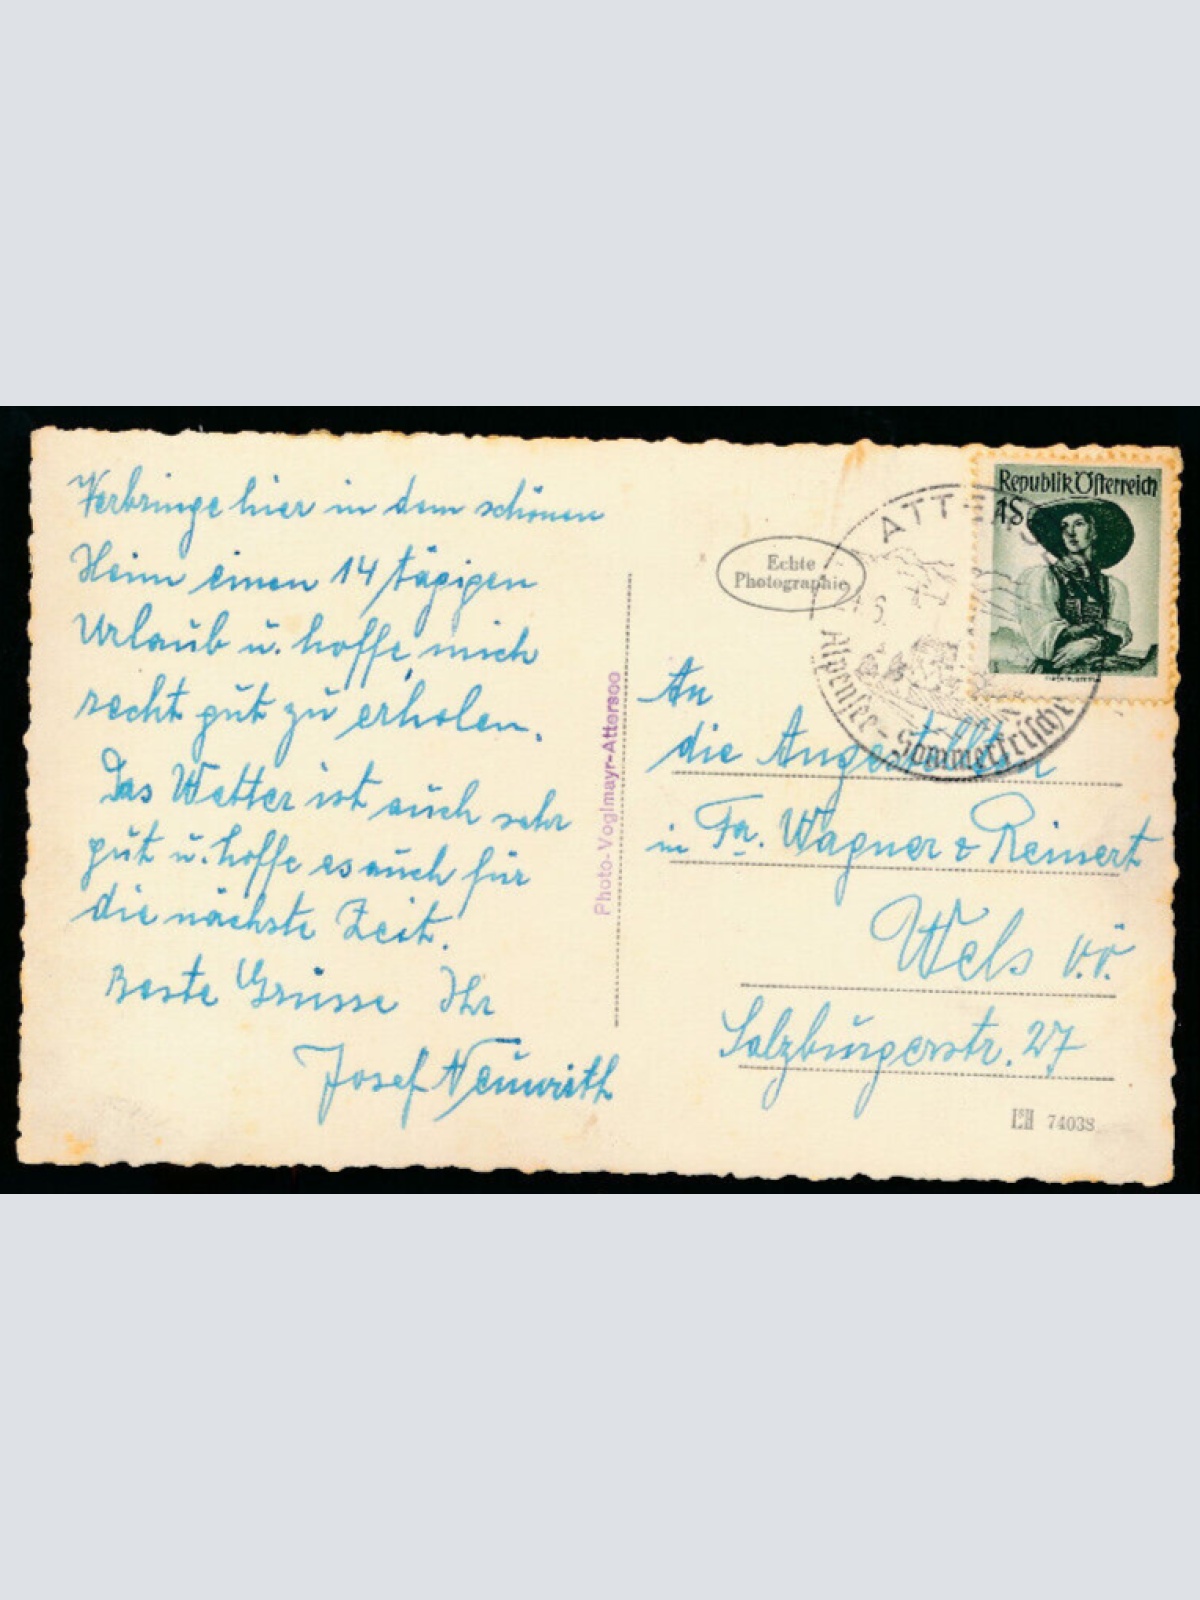 Verbringe hier in dem schönen
Heim einen 14 tägigen
Urlaub u. hoffe mich
recht gut zu erholen.
Das Wetter ist auch sehr
gut u. hoffe es auch für
die nächste Zeit.
Beste Grüsse Ihr
Josef Neuwirth
Photo-Voglmayr-Attersee
Echte
Photographie
Republik Österreich
1S
ATTERSEE
Alpensee-Sommerfrische
An
die Angestellten
in Fa. Wagner & Reinert
Wels O.Ö.
Salzburgerstr. 27
74038